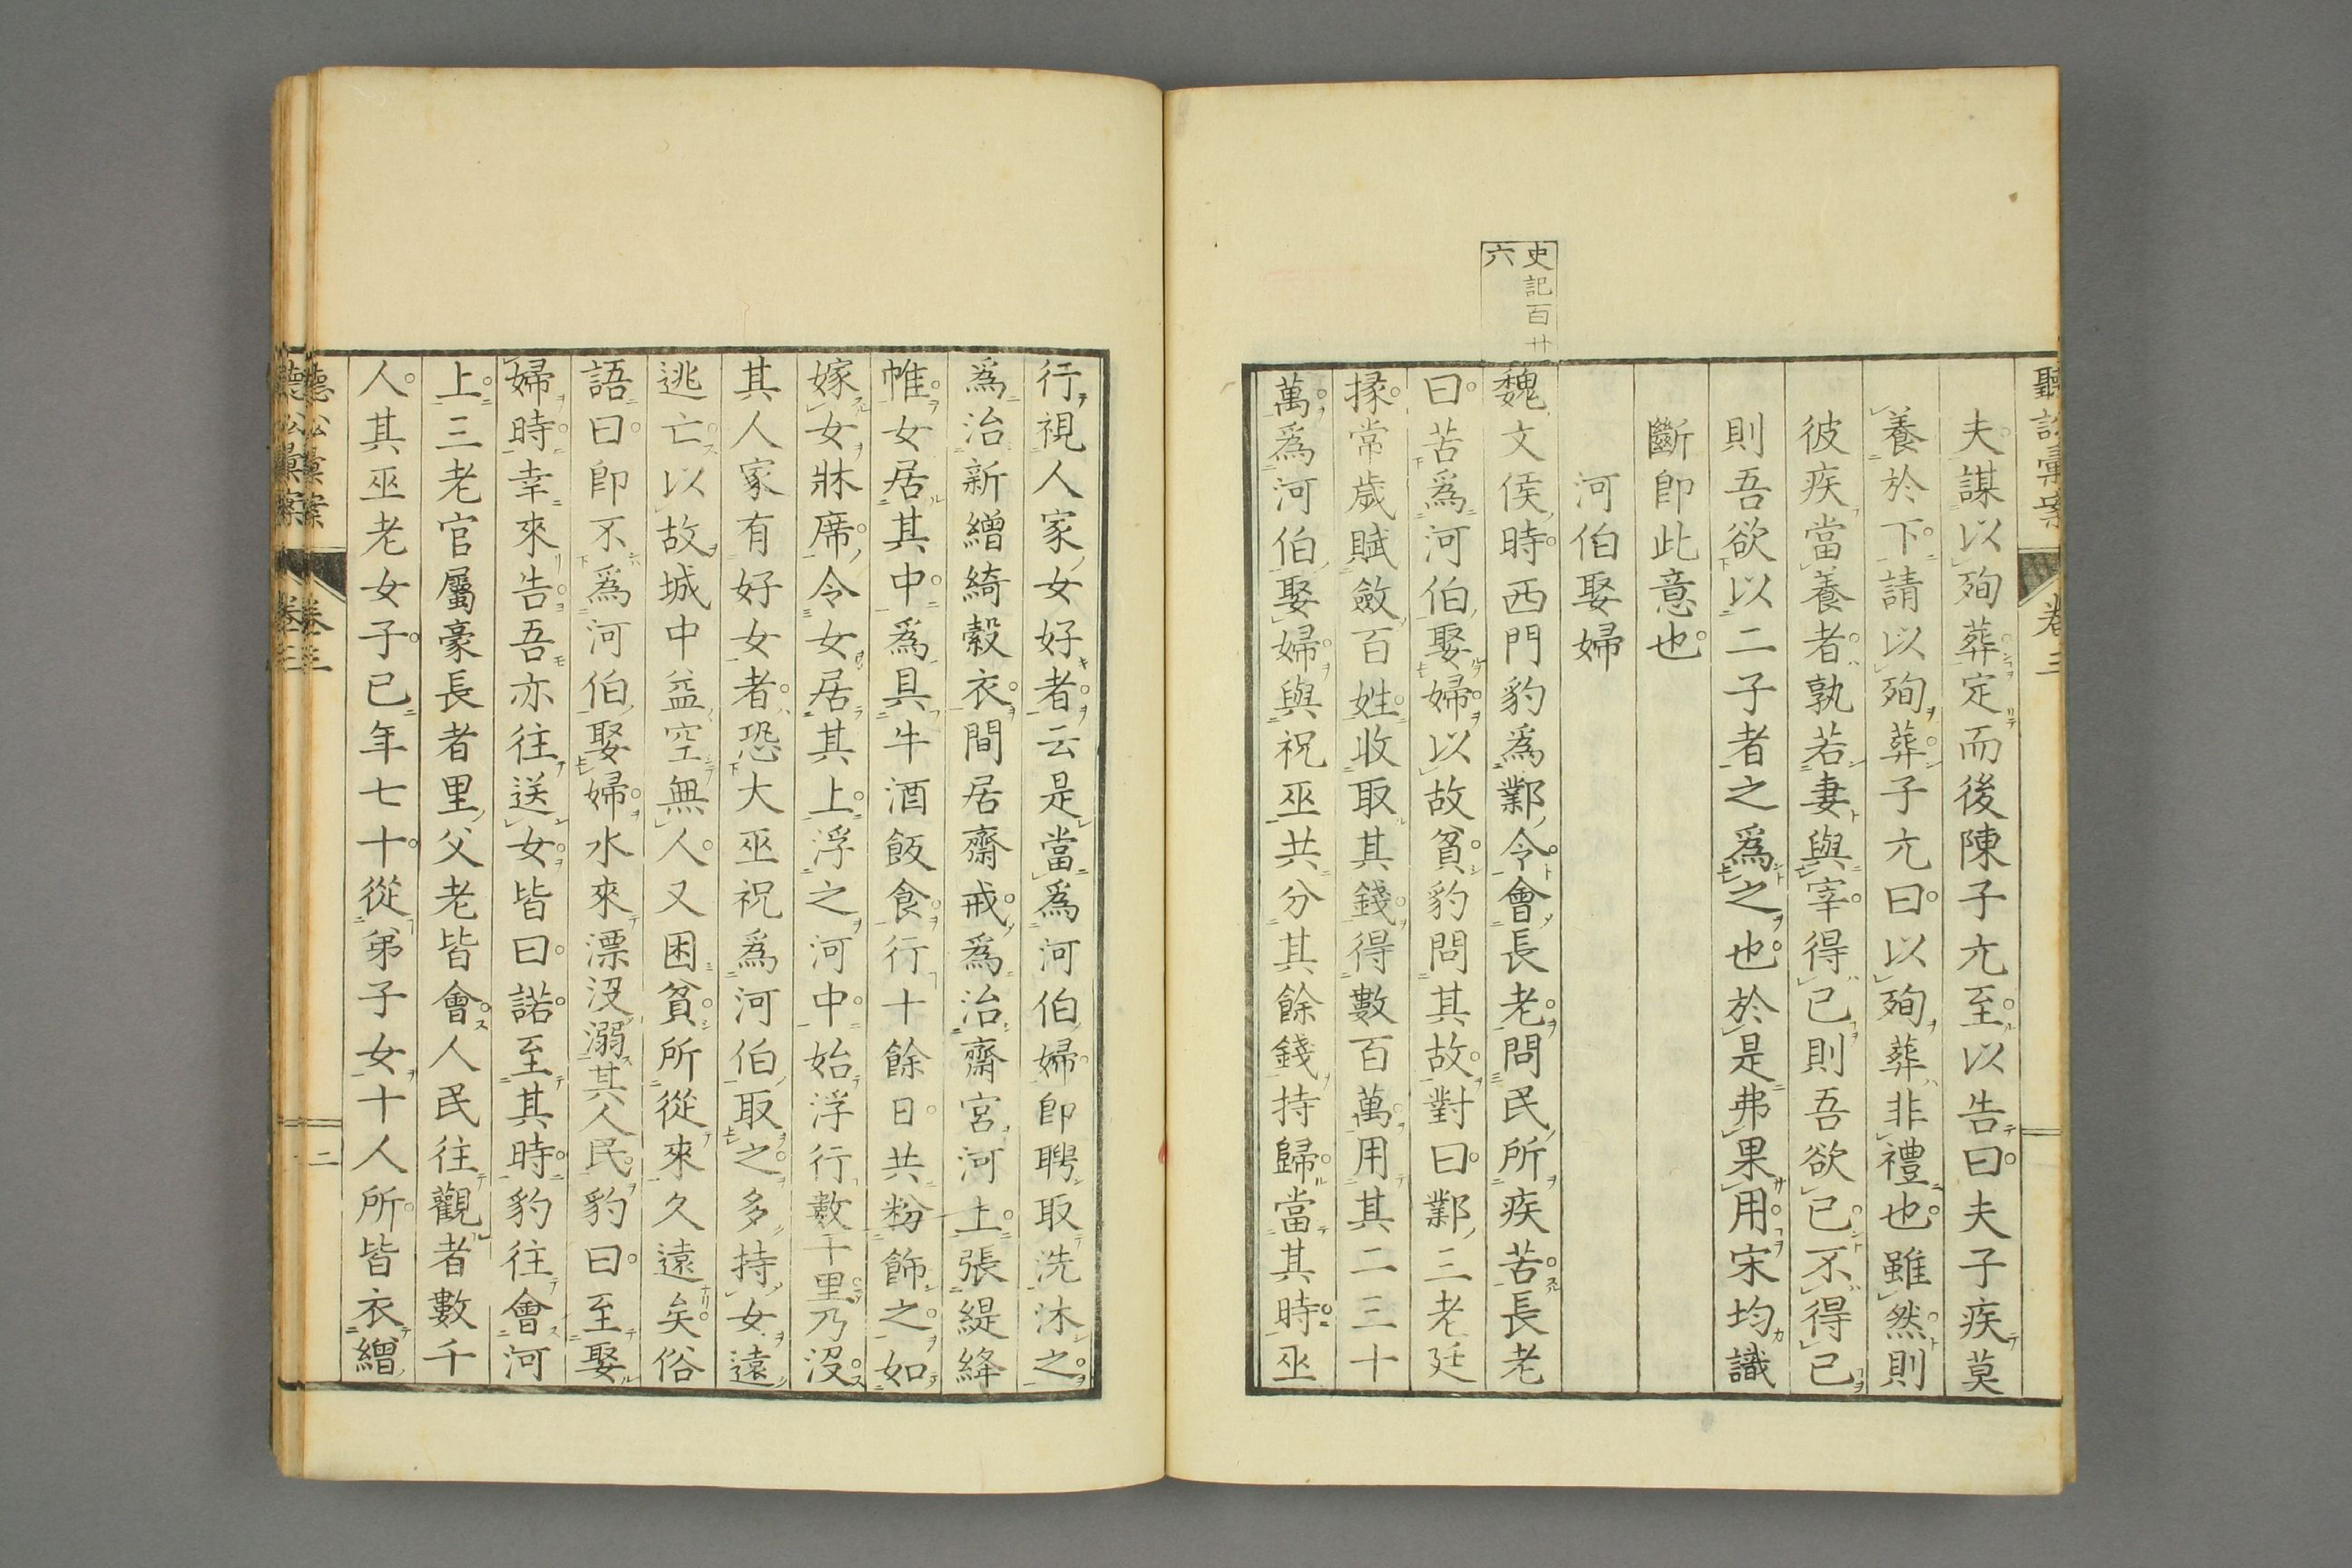 聽訟彙案 卷三
夫謀以殉葬定而後陳子亢至以告曰夫子疾莫
養於下請以殉葬子亢曰以殉葬非禮也雖然則
彼疾當養者孰若妻與宰得已則吾欲已不得已
則吾欲以二子者之爲之也於是弗果用宋均識
斷卽此意也
河伯娶婦
史記百廿
六
魏文侯時西門豹爲鄴令會長老問民所疾苦長老
曰苦爲河伯娶婦以故貧豹問其故對曰鄴三老廷
掾常歲賦斂百姓收取其錢得數百萬用其二三十
萬爲河伯娶婦與祝巫共分其餘錢持歸當其時巫
行視人家女好者云是當爲河伯婦卽聘取洗沐之
爲治新繒綺縠衣間居齋戒爲治齋宮河上張緹絳
帷女居其中爲具牛酒飯食行十餘日共粉飾之如
嫁女牀席令女居其上浮之河中始浮行數十里乃沒
其人家有好女者恐大巫祝爲河伯取之多持女遠
逃亡以故城中益空無人又困貧所從來久遠矣俗
語曰卽不爲河伯娶婦水來漂沒溺其人民豹曰至娶
婦時幸來告吾亦往送女皆曰諾至其時豹往會河
上三老官屬豪長者里父老皆會人民往觀者數千
人其巫老女子已年七十從弟子女十人所皆衣繒
聽訟彙案 卷三 二